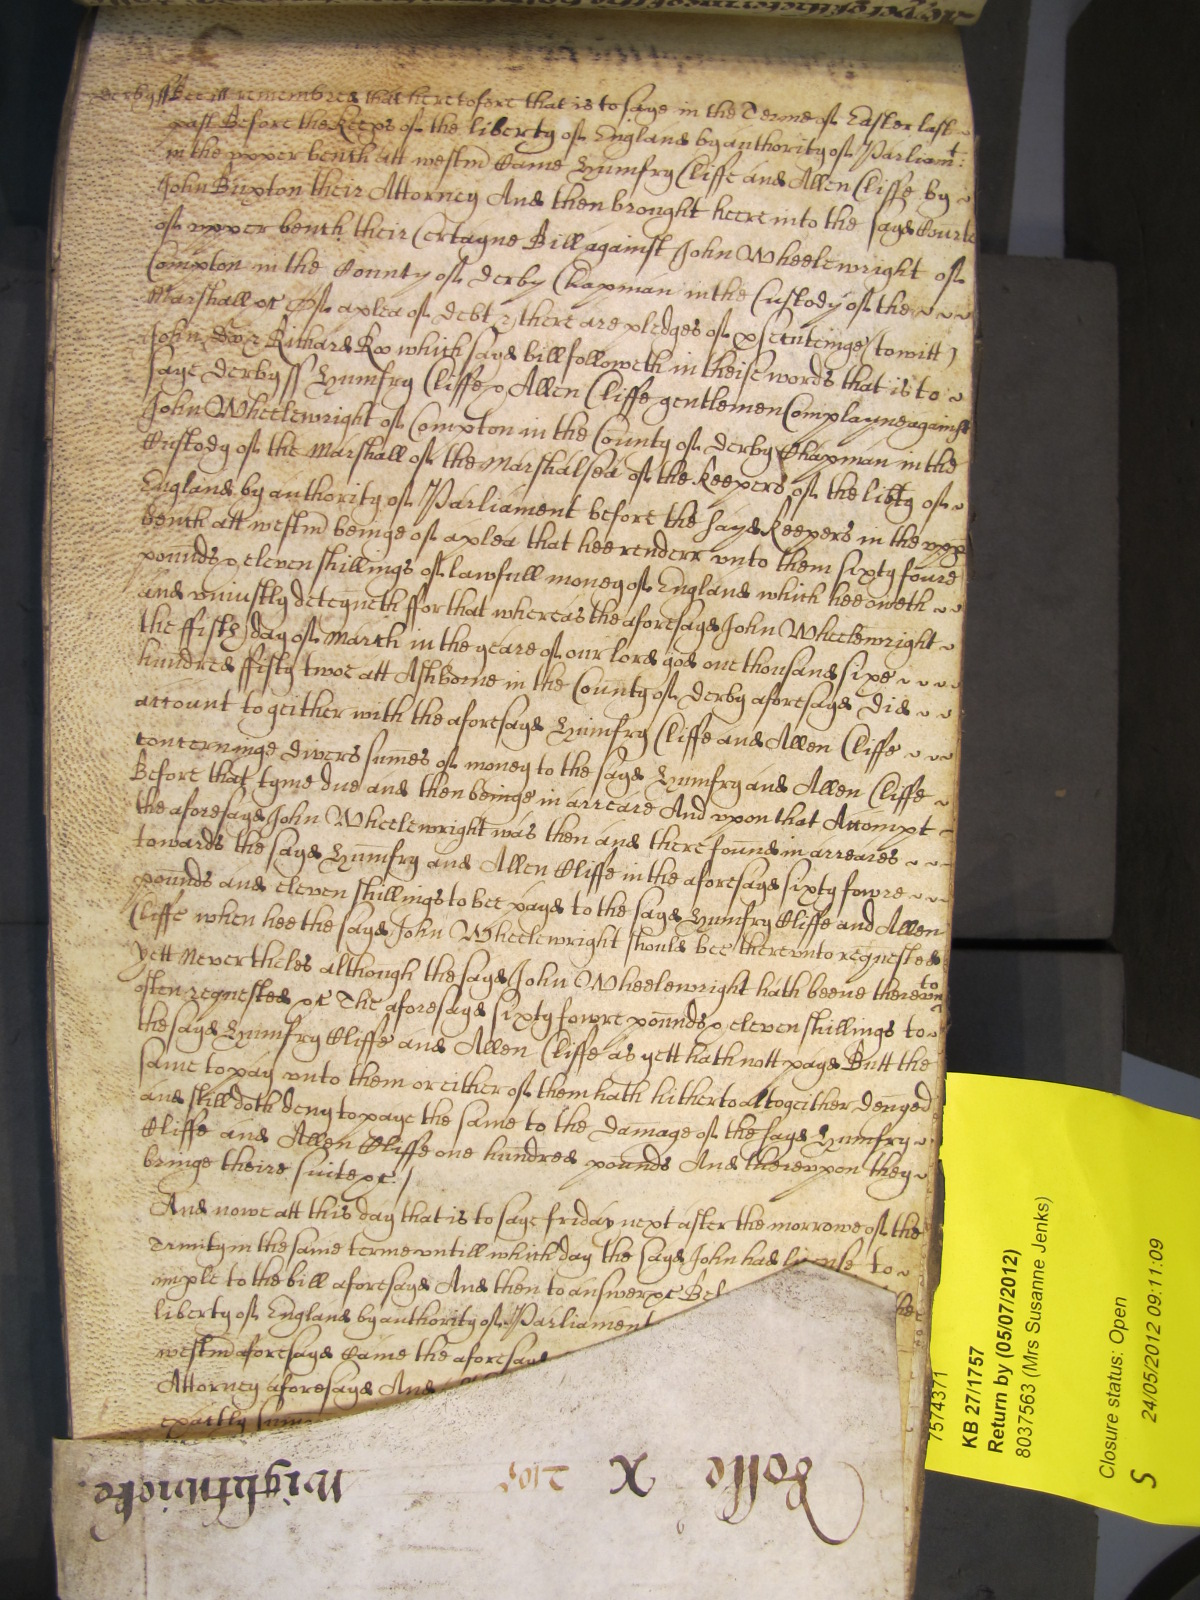 derby ss Bee itt remembred that heretofore that is to saye in the Terme of Easter last
past Before the Keeps of the liberty of England by authority of Parliamt:
in the upper bench att westmr Came Humfry Cliffe and Allen Cliffe by
John Buxton their Attorney And then brought heere into the sayd Courte
of upper bench their Certayne Bill against John Wheelewright of
Compton in the County of derby Chapman in the Custody of the
Marshall &c Of a plea of debt & there are pledges of psecuteinge (to witt)
John Doo & Richard Roo which sayd bill followeth in theise words that is to
saye derby ss Humfry Cliffe & Allen Cliffe gentlemen Complayne against
John Wheelewright of Compton in the County of derby Chapman in the
Custody of the Marshall of the Marshalsea of the Keepers of the libty of
England by authority of Parliament before the sayd Keepers in the upp
bench att westmr beinge of a plea that hee renderr unto them sixty foure
pounds & eleven shillings of lawfull money of England which hee oweth
and uniustly deteyneth ffor that whereas the aforesayd John Wheelewright
the ffifth day of March in the yeare of our lord god one thousand sixe
hundred ffifty twoe att Ashborne in the County of derby aforesayd did
account togeither with the aforesayd Humfry Cliffe and Allen Cliffe
concerninge divers sumes of money to the sayd Humfry and Allen Cliffe
Before that tyme due and then beinge in arreare And upon that Accompt
the aforesayd John Wheelewright was then and there found in arreares
towards the sayd Humfry and Allen Cliffe in the aforesayd sixty fowre
pounds and eleven shillings to bee payd to the sayd Humfry Cliffe and Allen
Cliffe when hee the sayd John Wheelewright should bee thereunto requested
Yett Nevertheles although the sayd John Wheelewright hath beene thereunto
often requested &c The aforesayd sixty fowre pounds & eleven shillings to
the sayd Humfry Cliffe and Allen Cliffe as yett hath nott payd Butt the
same to pay unto them or either of them hath hitherto altogeither denyed
and still doth deny to paye the same to the damage of the sayd Humfry
Cliffe and Allen Cliffe one hundred pounds And thereupon they
bringe theire suite &c /
And nowe att this day that is to saye friday next after the morrowe of the
Trinity in the same terme untill which day the sayd John had license to
imple to the bill aforesayd And then to answer &c Bef
liberty of England by authority of Parliament
westmr aforesayd Came the aforesayd
Attorney aforesayd And
exactly
Rolle X 210
Wightwicke.
7574371
KB 27/1757
Return by (05/07/2012)
8037563 (Mrs Susanne Jenks)
Closure status: Open
S
24/05/2012 09:11:09